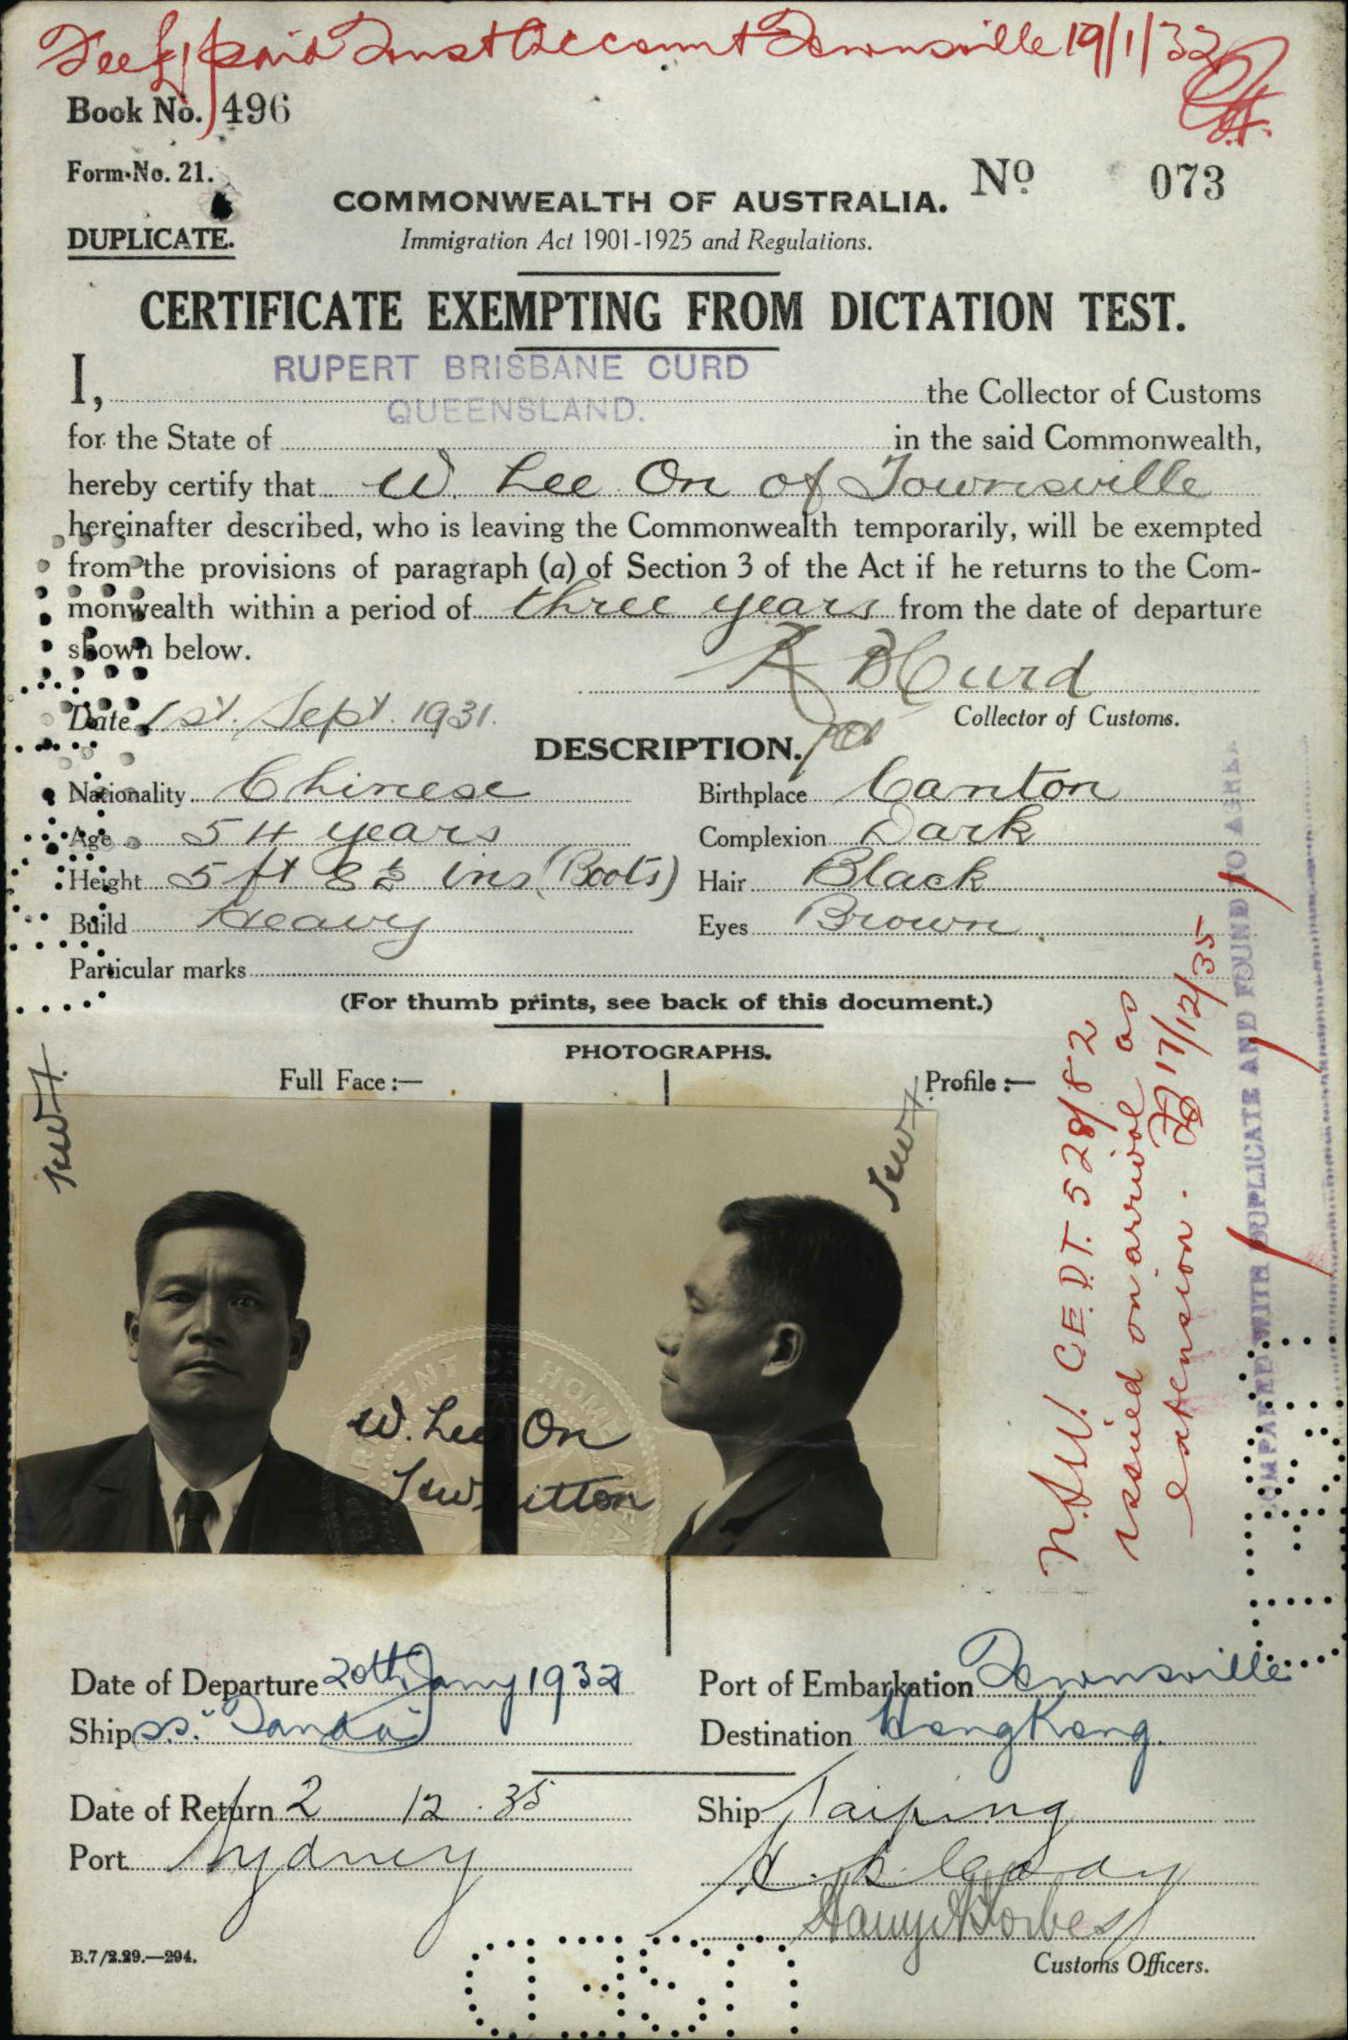 Fee £1 paid Trust Account Townsville 19/1/32
Book No. 496
Form No. 21.
No 073
COMMONWEALTH OF AUSTRALIA.
DUPLICATE.
Immigration Act 1901-1925 and Regulations.
CERTIFICATE EXEMPTING FROM DICTATION TEST.
I, RUPERT BRISBANE CURD the Collector of Customs
for the State of QUEENSLAND. in the said Commonwealth,
hereby certify that W. Lee On of Townsville
hereinafter described, who is leaving the Commonwealth temporarily, will be exempted
from the provisions of paragraph (a) of Section 3 of the Act if he returns to the Com-
monwealth within a period of three years from the date of departure
shown below.
R B Curd
Date 1st. Sept. 1931.
Collector of Customs.
DESCRIPTION.
Nationality Chinese
Birthplace Canton
Age 54 years
Complexion Dark
Height 5 ft 8½ ins (Boots)
Hair Black
Build Heavy
Eyes Brown
Particular marks
(For thumb prints, see back of this document.)
PHOTOGRAPHS.
Full Face :—
Profile :—
W. Lee On
N.S.W. C.E.D.T. 528/82
issued on arrival as
extension. 17/12/35
COMPARED WITH DUPLICATE AND FOUND TO AGREE
Date of Departure 20th Jany 1932
Port of Embarkation Townsville
Ship s.s. "Tanda"
Destination Hong Kong.
Date of Return 2 12 . 35
Ship Taiping
Port Sydney
Customs Officers.
B.7/2.29.—294.